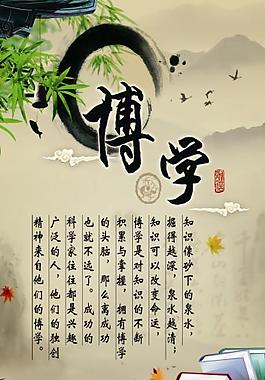 博学
知识像砂下的泉水，
掘得越深，泉水越清；
知识可以改变命运，
博学是对知识的不断
积累与掌握，拥有博学
的头脑，那么离成功
也就不远了。成功的
科学家往往都是兴趣
广泛的人，他们的独创
精神来自他们的博学。